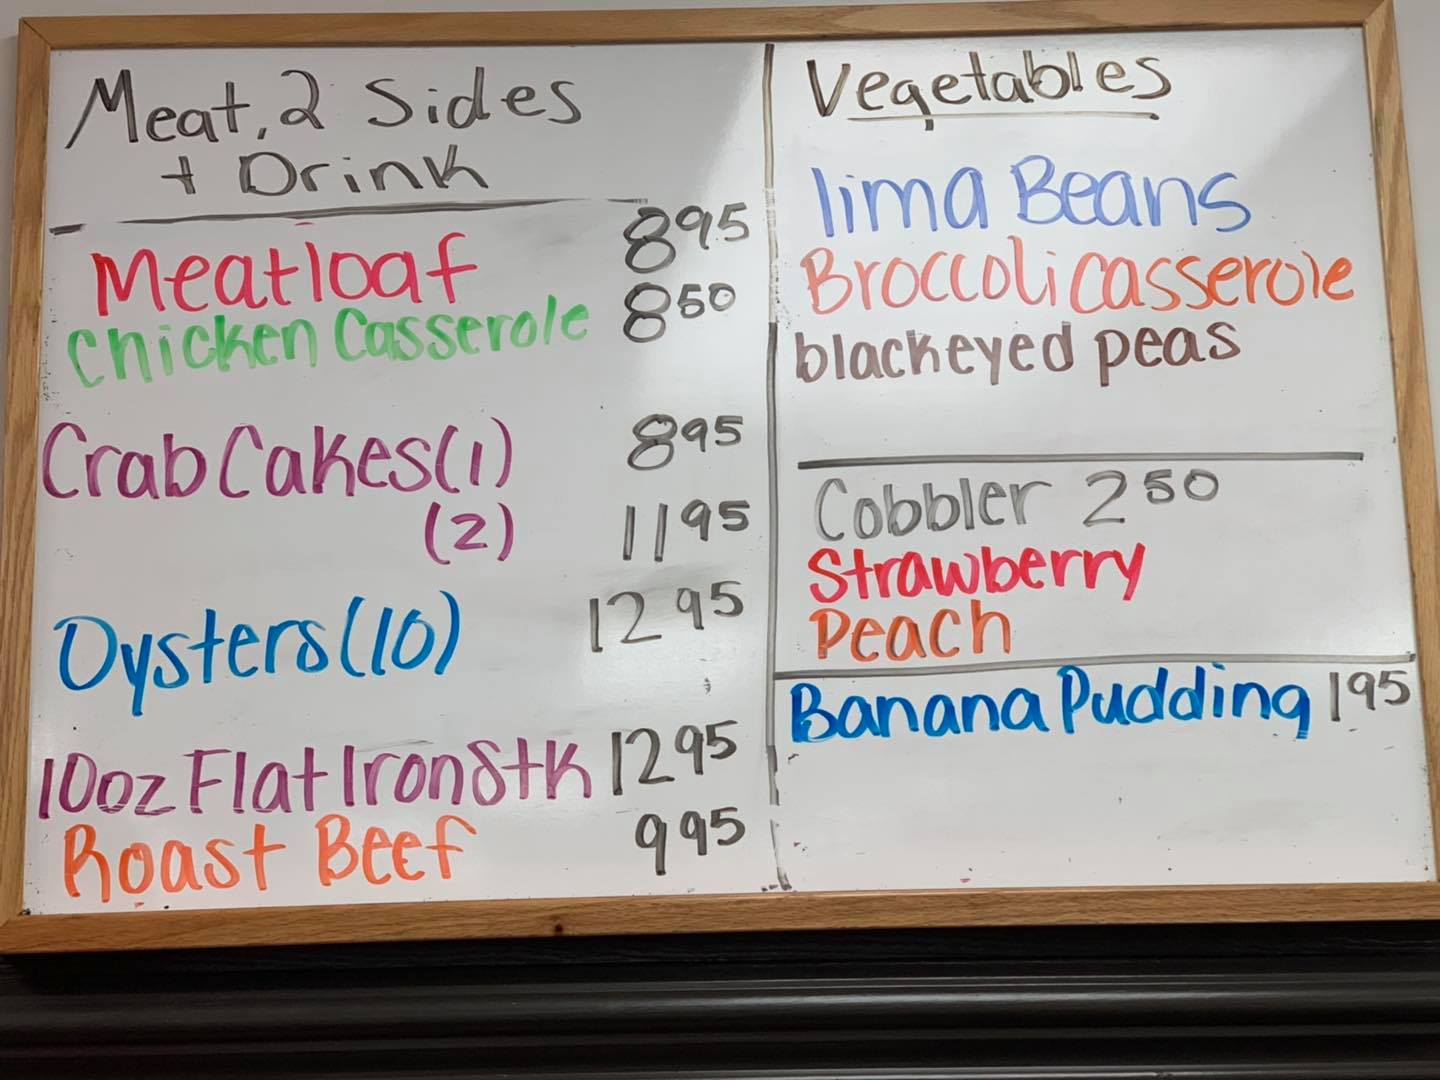 Meat, 2 Sides
+ Drink
Meatloaf 8 95
Chicken Casserole 8 50
Crab Cakes (1) 8 95
(2) 11 95
Oysters (10) 12 95
10oz Flat Iron Stk 12 95
Roast Beef 9 95
Vegetables
lima Beans
Broccoli casserole
blackeyed peas
Cobbler 2 50
Strawberry
Peach
Banana Pudding 1 95